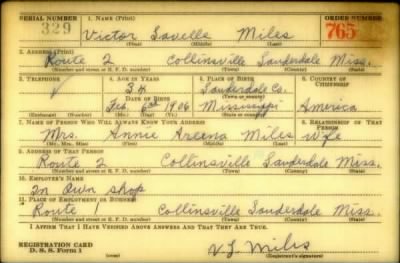 SERIAL NUMBER 1. NAME (Print) ORDER NUMBER
329 Victor Lavelle Miles 765
(First) (Middle) (Last)
2. ADDRESS (Print)
Route 2 Collinsville Lauderdale Miss.
(Number and street or R. F. D. number) (Town) (County) (State)
3. TELEPHONE 4. AGE IN YEARS 5. PLACE OF BIRTH 6. COUNTRY OF CITIZENSHIP
34 Lauderdale Co.
DATE OF BIRTH (Town or county)
Feb. 6 1906 Mississippi America
(Mo.) (Day) (Yr.) (State or country)
7. NAME OF PERSON WHO WILL ALWAYS KNOW YOUR ADDRESS 8. RELATIONSHIP OF THAT PERSON
Mrs. Annie Areena Miles Wife
(Mr., Mrs., Miss) (First) (Middle) (Last)
9. ADDRESS OF THAT PERSON
Route 2 Collinsville Lauderdale Miss.
(Number and street or R. F. D. number) (Town) (County) (State)
10. EMPLOYER'S NAME
In Own shop
11. PLACE OF EMPLOYMENT OR BUSINESS
Route 1 Collinsville Lauderdale Miss.
(Number and street or R. F. D. number) (Town) (County) (State)
I AFFIRM THAT I HAVE VERIFIED ABOVE ANSWERS AND THAT THEY ARE TRUE.
REGISTRATION CARD
D. S. S. Form 1 V L Miles
(Registrant's signature)